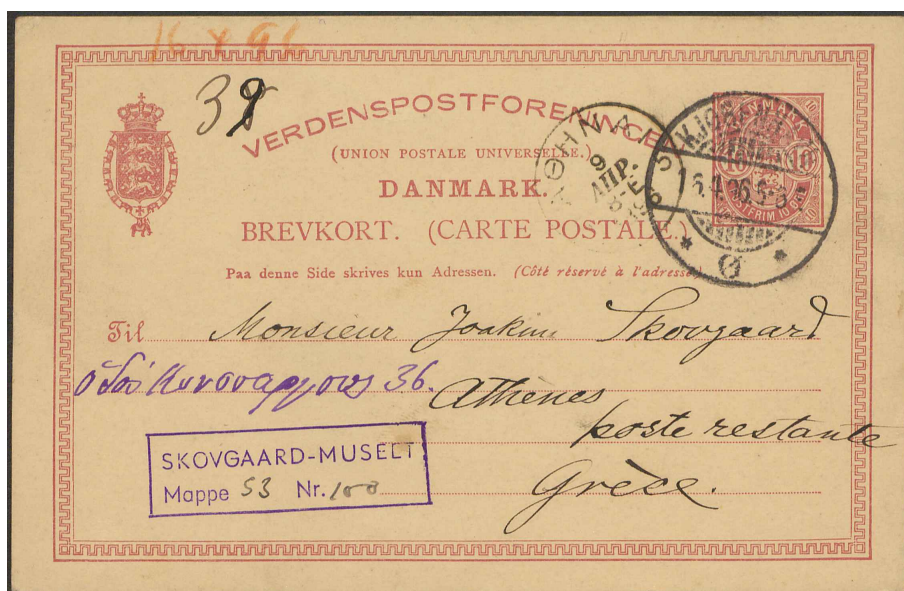 38
VERDENSPOSTFORENINGEN
(UNION POSTALE UNIVERSELLE.)
DANMARK.
BREVKORT. (CARTE POSTALE.)
Paa denne Side skrives kun Adressen. (Côté réservé à l'adresse.)
ΑΘΗΝΑΙ
9
ΑΠΡ.
KJØB
16.4.96.5-6
Ø
DANMARK
10 10
POSTFRIM 10 ØRE
Til Monsieur Joakim Skovgaard
ὁδός Κυνοσαργους 36.
Athènes
poste restante
Grèce.
SKOVGAARD-MUSEET
Mappe 53 Nr. 100